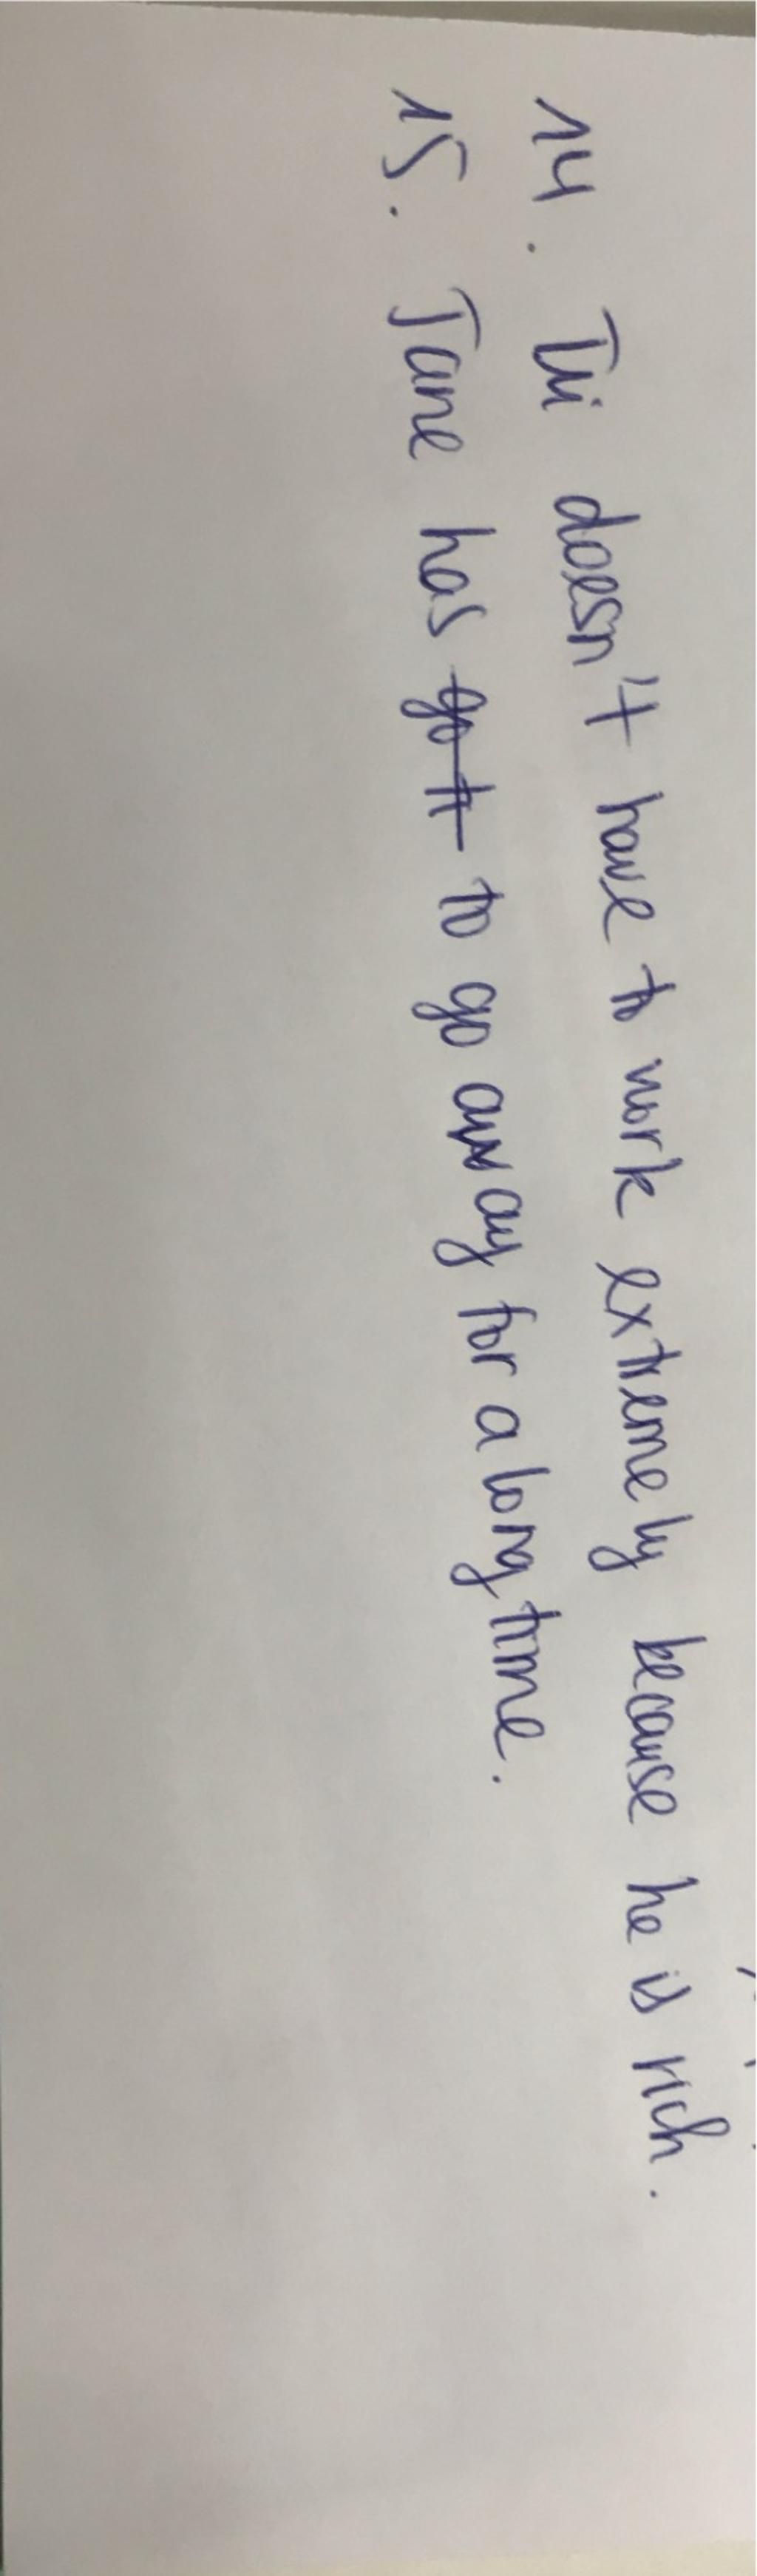 14. Tri doesn't have to work extremely because he is rich.
15. Jane has to go away for a long time.